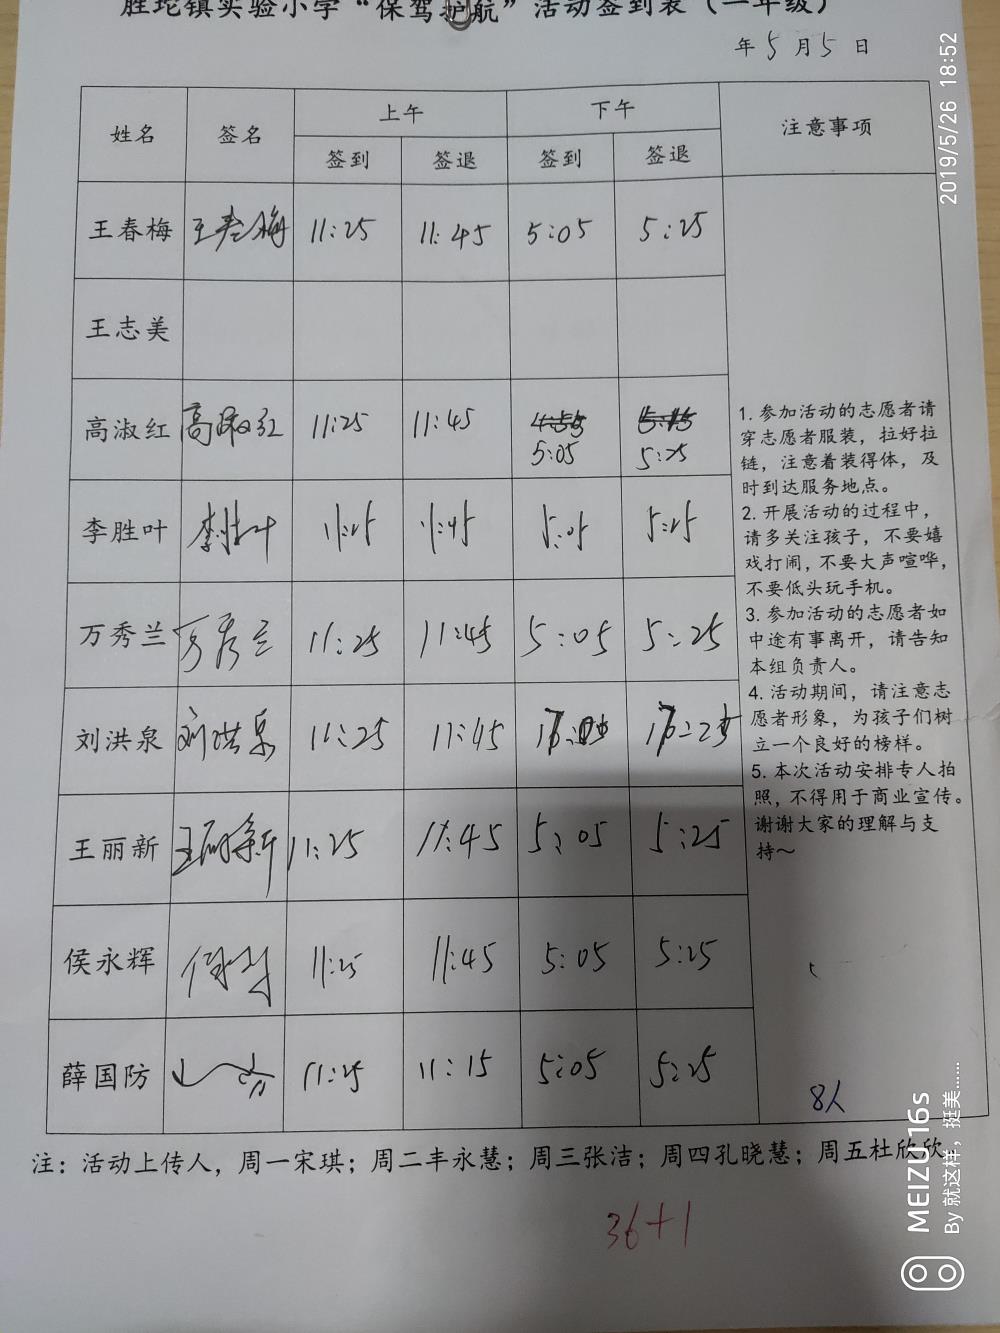 胜坨镇实验小学“保驾护航”活动签到表（一年级）
年5月5日
姓名 签名 上午 下午 注意事项
签到 签退 签到 签退
王春梅 王春梅 11:25 11:45 5:05 5:25
王志美
高淑红 高淑红 11:25 11:45 5:05 5:25
李胜叶 李胜叶 11:25 11:45 5:05 5:25
万秀兰 万秀兰 11:25 11:45 5:05 5:25
刘洪泉 刘洪泉 11:25 11:45
王丽新 王丽新 11:25 11:45 5:05 5:25
侯永辉 11:25 11:45 5:05 5:25
薛国防 11:25 11:15 5:05 5:25
1. 参加活动的志愿者请
穿志愿者服装，拉好拉
链，注意着装得体，及
时到达服务地点。
2. 开展活动的过程中，
请多关注孩子，不要嬉
戏打闹，不要大声喧哗，
不要低头玩手机。
3. 参加活动的志愿者如
中途有事离开，请告知
本组负责人。
4. 活动期间，请注意志
愿者形象，为孩子们树
立一个良好的榜样。
5. 本次活动安排专人拍
照，不得用于商业宣传。
谢谢大家的理解与支
持～
8人
注：活动上传人，周一宋琪；周二丰永慧；周三张洁；周四孔晓慧；周五杜欣欣
36+1
2019/5/26 18:52
MEIZU 16s
By 就这样，挺美……